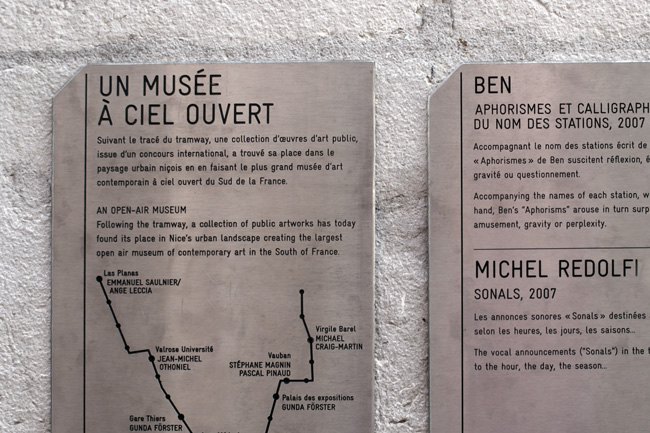 UN MUSÉE
À CIEL OUVERT
Suivant le tracé du tramway, une collection d'œuvres d'art public,
issue d'un concours international, a trouvé sa place dans le
paysage urbain niçois en en faisant le plus grand musée d'art
contemporain à ciel ouvert du Sud de la France.
AN OPEN-AIR MUSEUM
Following the tramway, a collection of public artworks has today
found its place in Nice's urban landscape creating the largest
open air museum of contemporary art in the South of France.
Las Planas
EMMANUEL SAULNIER/
ANGE LECCIA
Valrose Université
JEAN-MICHEL
OTHONIEL
Gare Thiers
GUNDA FÖRSTER
Virgile Barel
MICHAEL
CRAIG-MARTIN
Vauban
STÉPHANE MAGNIN
PASCAL PINAUD
Palais des expositions
GUNDA FÖRSTER
BEN
APHORISMES ET CALLIGRAPH
DU NOM DES STATIONS, 2007
Accompagnant le nom des stations écrit de
« Aphorismes » de Ben suscitent réflexion,
gravité ou questionnement.
Accompanying the names of each station, w
hand, Ben's "Aphorisms" arouse in turn surp
amusement, gravity or perplexity.
MICHEL REDOLFI
SONALS, 2007
Les annonces sonores « Sonals » destinées
selon les heures, les jours, les saisons...
The vocal announcements ("Sonals") in the
to the hour, the day, the season...